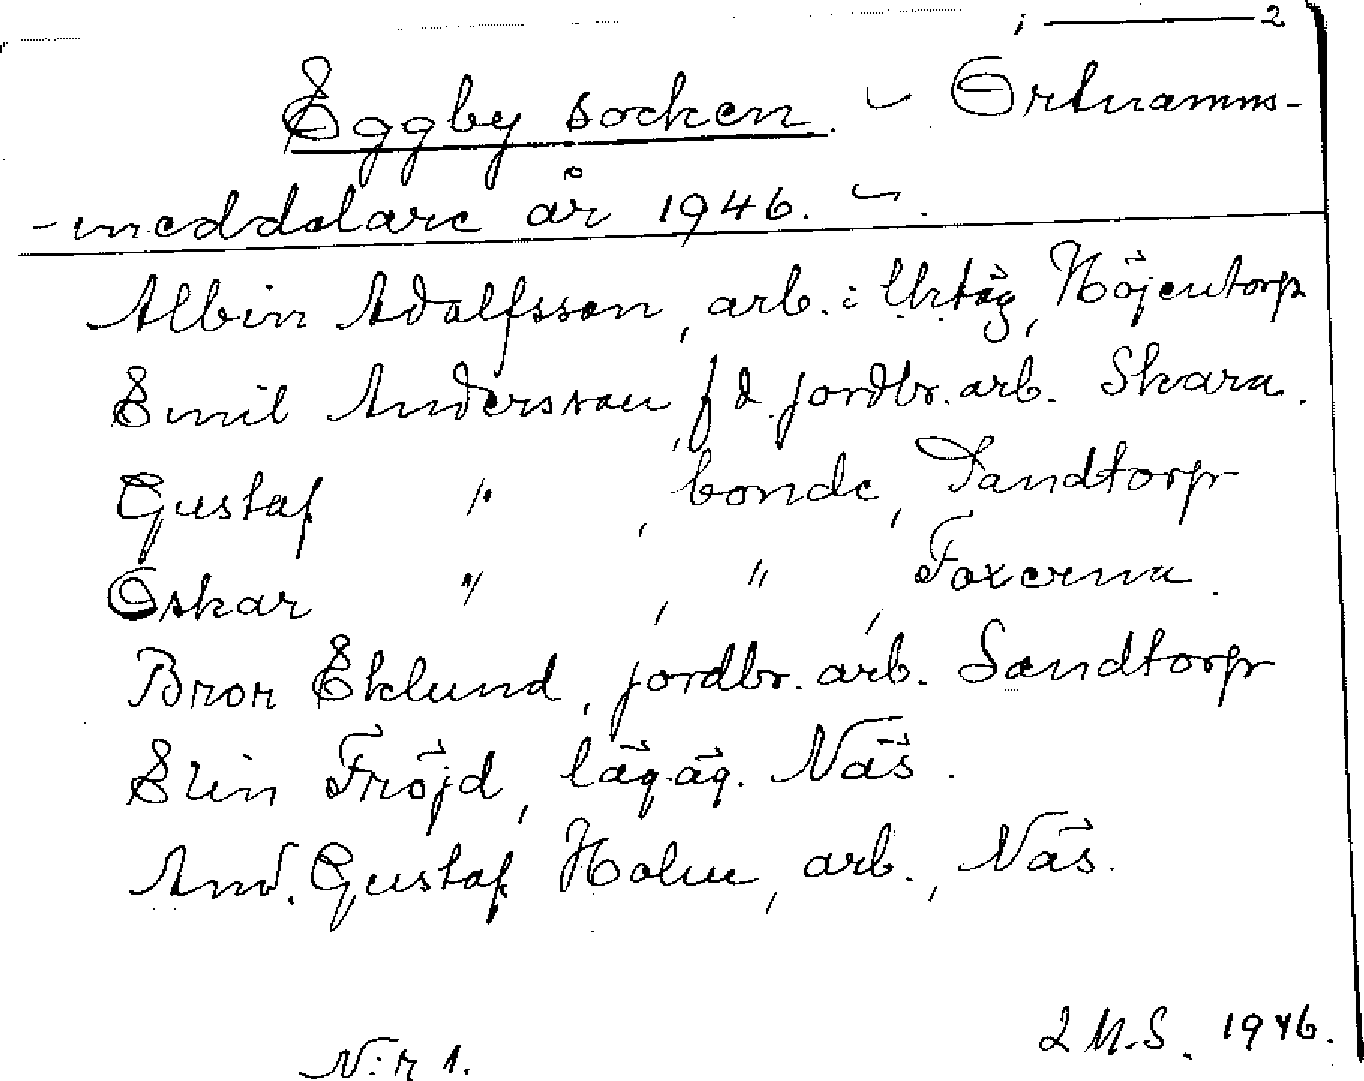 1 — 2
Eggby socken. - Ortnamns-
-meddelare år 1946. -.
Albin Adolfsson, arb. i Urtåg, Höjentorp
Emil Andersson, f d. jordbr. arb. Skara.
Gustaf " , bonde, Sandtorp
Oskar " , " , Foxerna.
Bror Eklund, jordbr. arb. Sandtorp
Elin Fröjd, läg.äg. Näs.
And. Gustaf Holm, arb., Näs.
N:r 1.
L M.S. 1946.